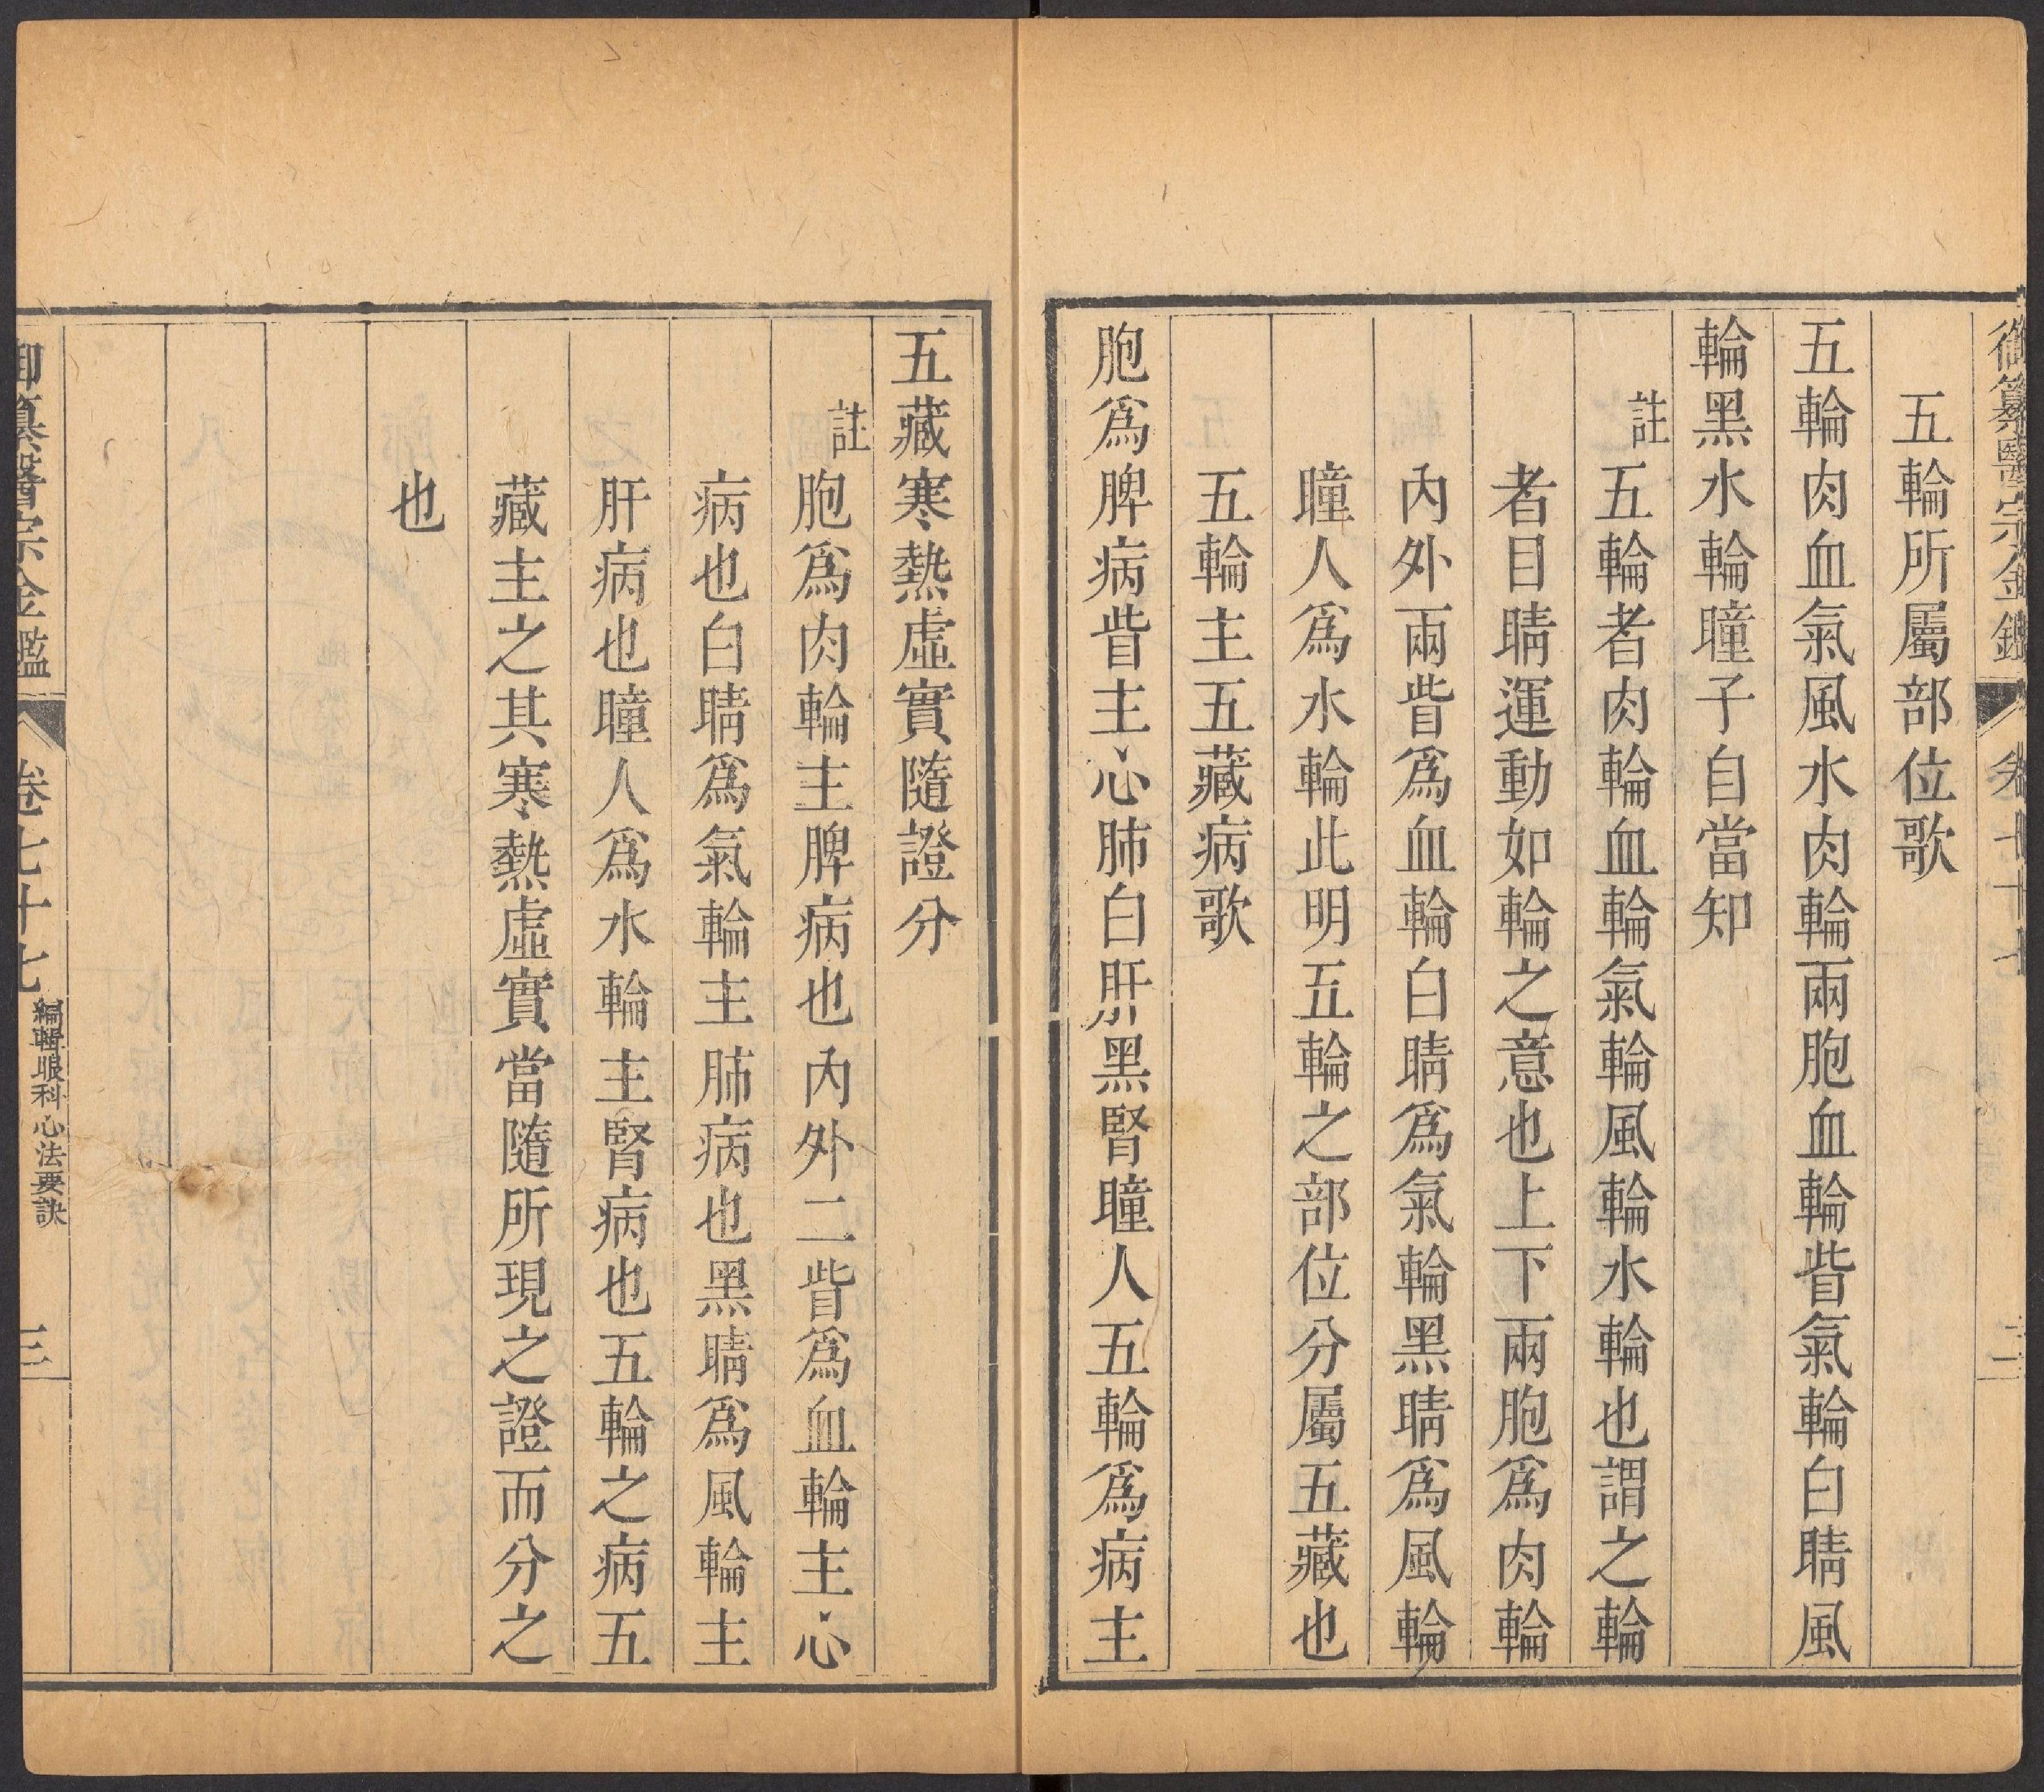 御纂醫宗金鑑
卷七十七
二
五輪所屬部位歌
五輪肉血氣風水肉輪兩胞血輪眥氣輪白睛風
輪黑水輪瞳子自當知
註
五輪者肉輪血輪氣輪風輪水輪也謂之輪
者目睛運動如輪之意也上下兩胞爲肉輪
內外兩眥爲血輪白睛爲氣輪黑睛爲風輪
瞳人爲水輪此明五輪之部位分屬五藏也
五輪主五藏病歌
胞爲脾病眥主心肺白肝黑腎瞳人五輪爲病主
五藏寒熱虛實隨證分
註
胞爲肉輪主脾病也內外二眥爲血輪主心
病也白睛爲氣輪主肺病也黑睛爲風輪主
肝病也瞳人爲水輪主腎病也五輪之病五
藏主之其寒熱虛實當隨所現之證而分之
也
御纂醫宗金鑑
卷七十七
編輯眼科心法要訣
三